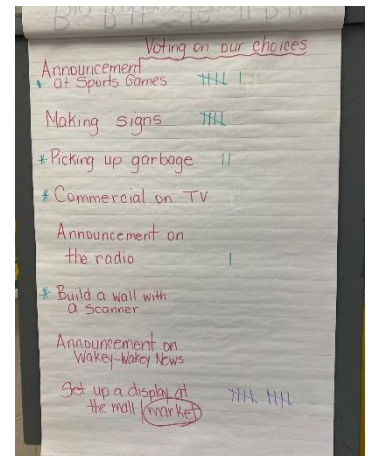 Voting on our choices
Announcement
* at Sports Games
Making signs
* Picking up garbage
* Commercial on TV
Announcement on
the radio
* Build a wall with
a scanner
Announcement on
Wakey-Wakey News
Set up a display at
the mall / market